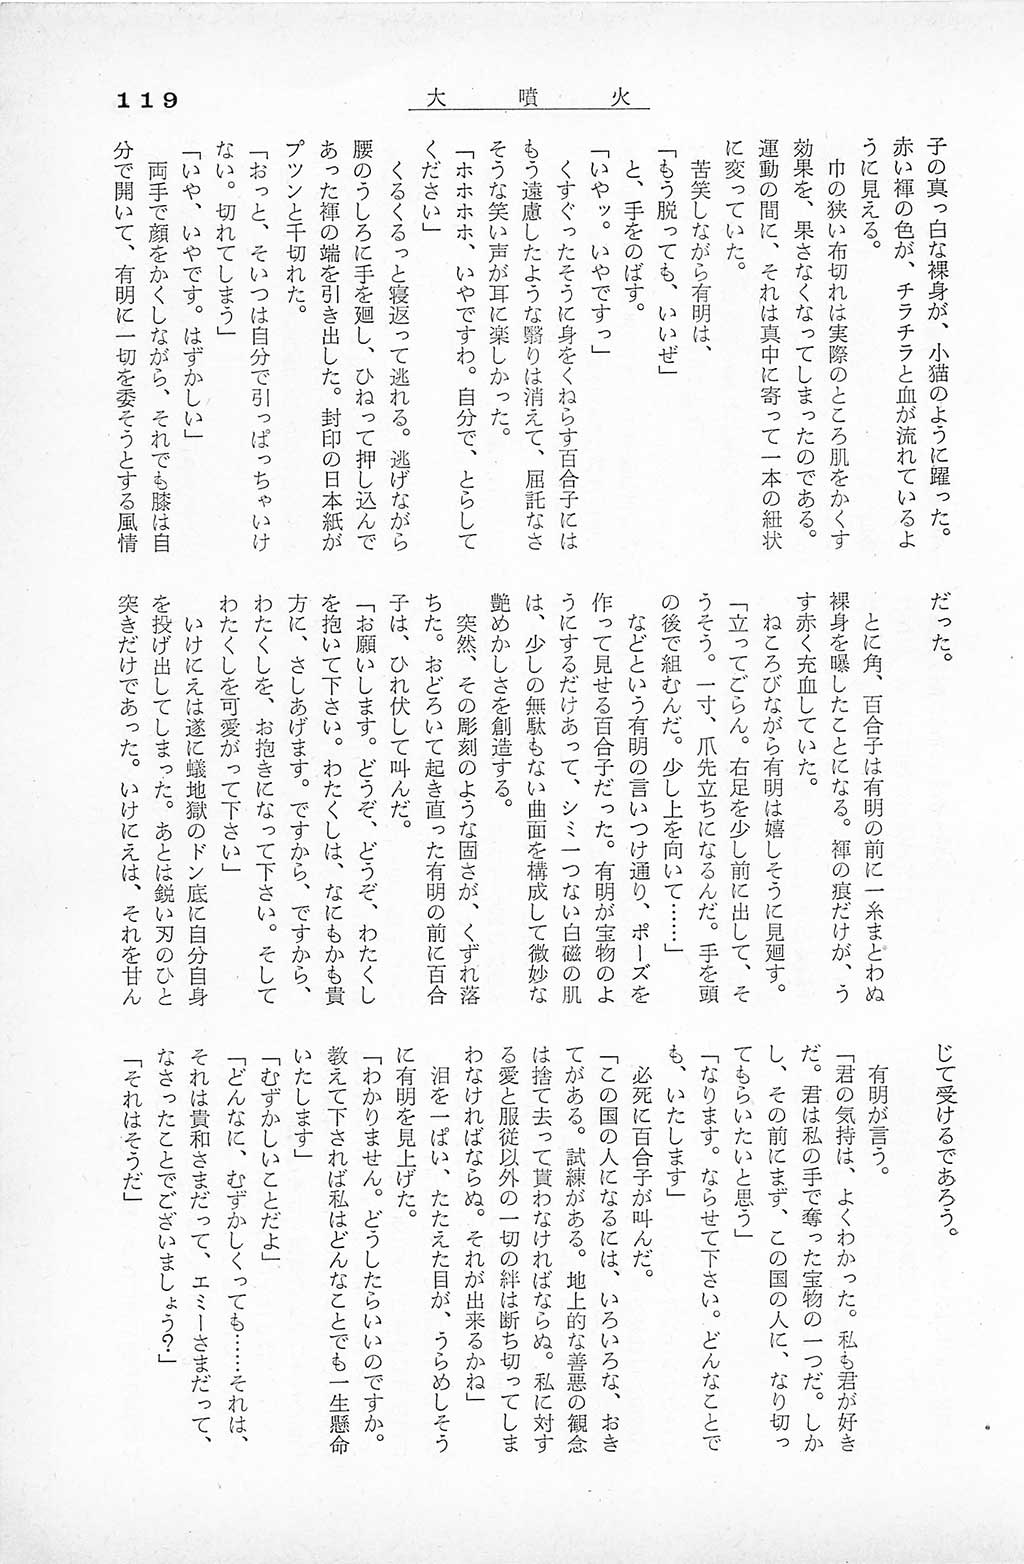 119
大噴火
子の真っ白な裸身が、小猫のように躍った。
赤い褌の色が、チラチラと血が流れているよ
うに見える。
巾の狭い布切れは実際のところ肌をかくす
効果を、果さなくなってしまったのである。
運動の間に、それは真中に寄って一本の紐状
に変っていた。
苦笑しながら有明は、
「もう脱っても、いいぜ」
と、手をのばす。
「いやッ。いやですっ」
くすぐったそうに身をくねらす百合子には
もう遠慮したような翳りは消えて、屈託なさ
そうな笑い声が耳に楽しかった。
「ホホホホ、いやですわ。自分で、とらして
ください」
くるくるっと寝返って逃れる。逃げながら
腰のうしろに手を廻し、ひねって押し込んで
あった褌の端を引き出した。封印の日本紙が
プツンと千切れた。
「おっと、そいつは自分で引っぱっちゃいけ
ない。切れてしまう」
「いや、いやです。はずかしい」
両手で顔をかくしながら、それでも膝は自
分で開いて、有明に一切を委そうとする風情
だった。
とに角、百合子は有明の前に一糸まとわぬ
裸身を曝したことになる。褌の痕だけが、う
す赤く充血していた。
ねころびながら有明は嬉しそうに見廻す。
「立ってごらん。右足を少し前に出して、そ
うそう。一寸、爪先立ちになるんだ。手を頭
の後で組むんだ。少し上を向いて……」
などという有明の言いつけ通り、ポーズを
作って見せる百合子だった。有明が宝物のよ
うにするだけあって、シミ一つない白磁の肌
は、少しの無駄もない曲面を構成して微妙な
艶めかしさを創造する。
突然、その彫刻のような固さが、くずれ落
ちた。おどろいて起き直った有明の前に百合
子は、ひれ伏して叫んだ。
「お願いします。どうぞ、どうぞ、わたくし
を抱いて下さい。わたくしは、なにもかも貴
方に、さしあげます。ですから、ですから、
わたくしを、お抱きになって下さい。そして
わたくしを可愛がって下さい」
いけにえは遂に蟻地獄のドン底に自分自身
を投げ出してしまった。あとは鋭い刃のひと
突きだけであった。いけにえは、それを甘ん
じて受けるであろう。
有明が言う。
「君の気持は、よくわかった。私も君が好き
だ。君は私の手で奪った宝物の一つだ。しか
し、その前にまず、この国の人に、なり切っ
てもらいたいと思う」
「なります。ならせて下さい。どんなことで
も、いたします」
必死に百合子が叫んだ。
「この国の人になるには、いろいろな、おき
てがある。試練がある。地上的な善悪の観念
は捨て去って貰わなければならぬ。私に対す
る愛と服従以外の一切の絆は断ち切ってしま
わなければならぬ。それが出来るかね」
泪を一ぱい、たたえた目が、うらめしそう
に有明を見上げた。
「わかりません。どうしたらいいのですか。
教えて下されば私はどんなことでも一生懸命
いたします」
「むずかしいことだよ」
「どんなに、むずかしくっても……それは、
それは貴和さまだって、エミーさまだって、
なさったことでございましょう?」
「それはそうだ」